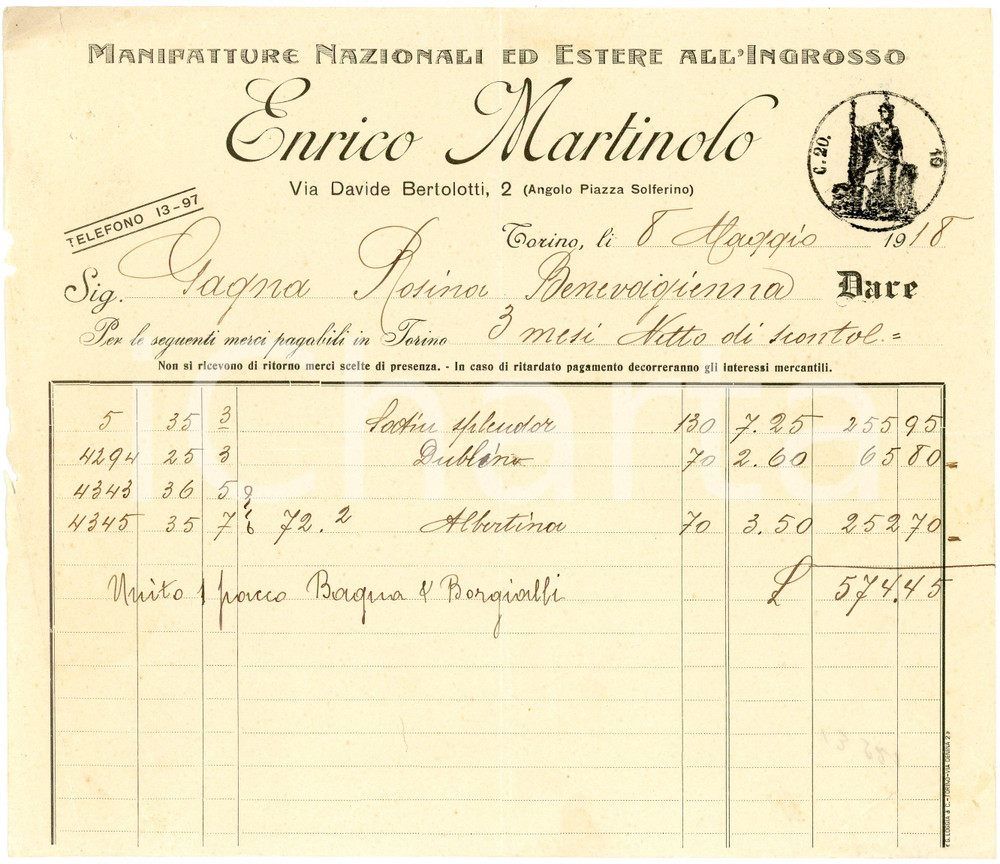 MANIFATTURE NAZIONALI ED ESTERE ALL'INGROSSO
Enrico Martinolo
Via Davide Bertolotti, 2 (Angolo Piazza Solferino)
C. 20. 10
TELEFONO 13-97
Torino, li 8 Maggio 1918
Sig. Gagna Rosina Benevagienna Dare
Per le seguenti merci pagabili in Torino 3 mesi Netto di scontol.=
Non si ricevono di ritorno merci scelte di presenza. - In caso di ritardato pagamento decorreranno gli interessi mercantili.
iCharta
5 35 3 Satin splendor 130 7.25 255 95
4294 25 3 Dublino 70 2.60 65 80
4343 36 5
4345 35 7 72.2 Albertina 70 3.50 252 70
Unito 1 pacco Bagna & Borgialli £ 574.45
G. LOGGIA & C.-TORINO-VIA DENINA 2